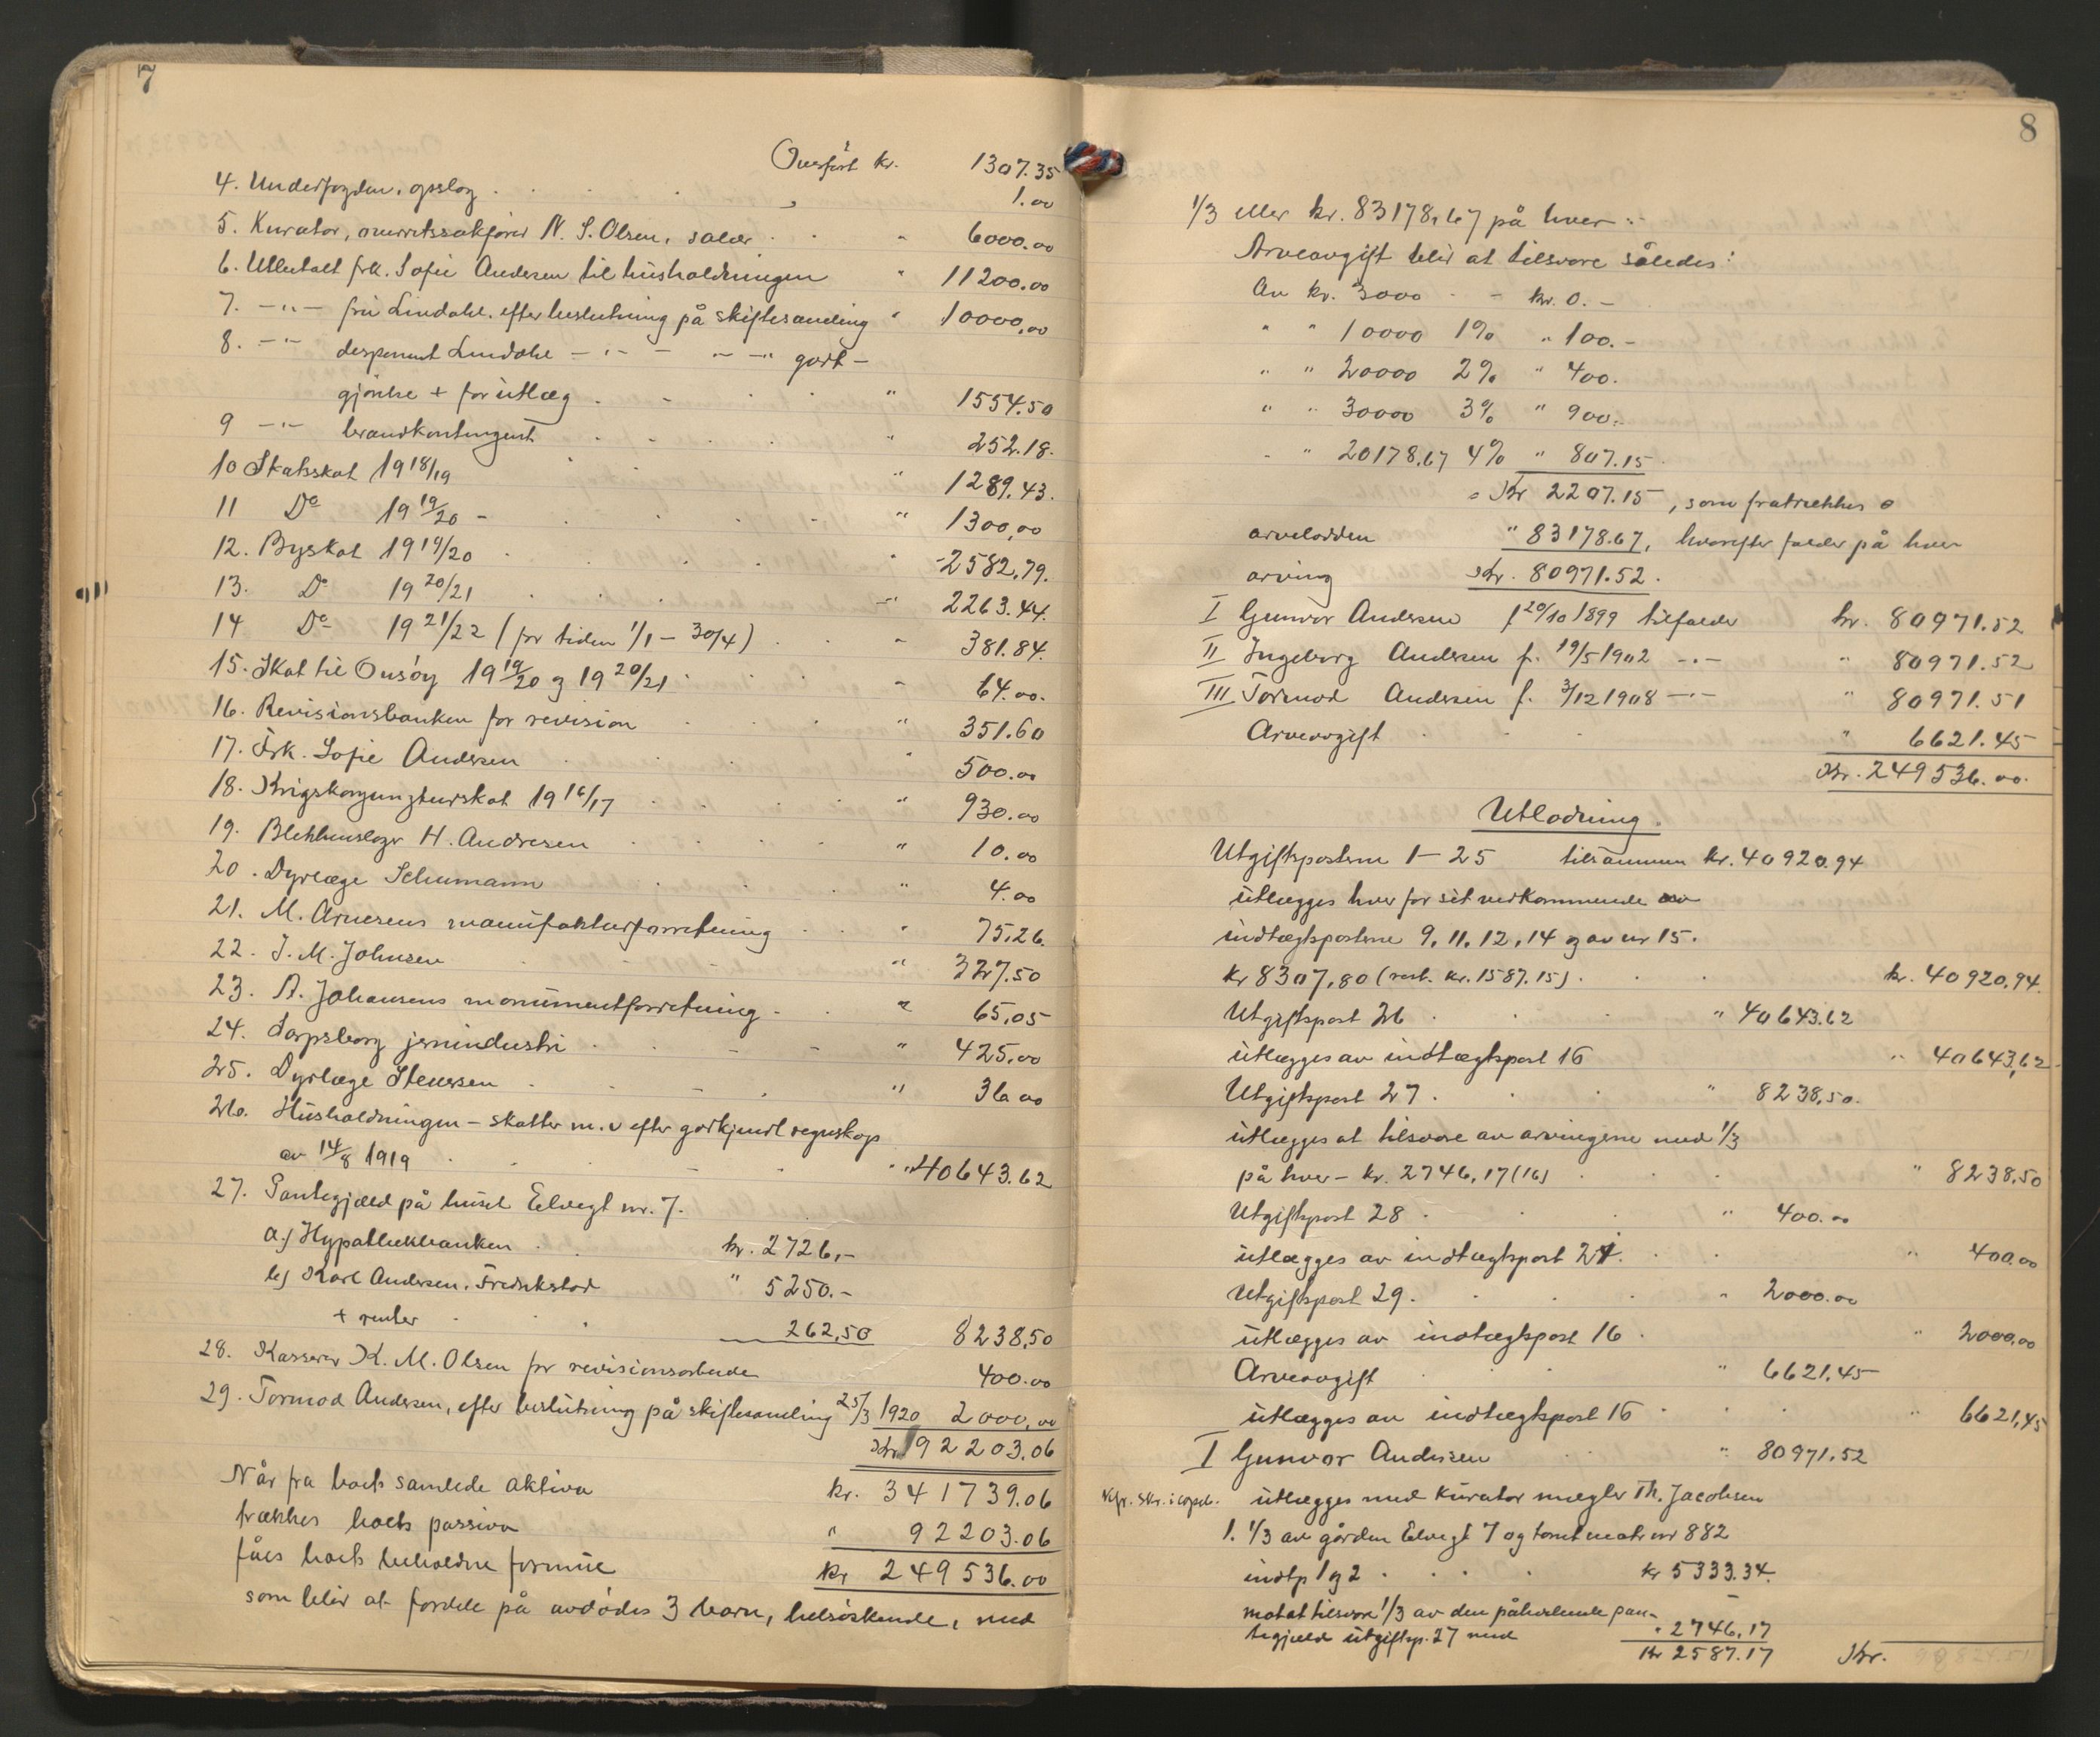 7
Overført kr. 1307.35
4. Underfogden, opslag . . . " 1.00
5. Kurator, overretssakfører N. S. Olsen, salær . . " 6000.00
6. Utbetalt frk. Sofie Andersen til husholdningen " 11200.00
7. -"- fru Lindahl, efter beslutning på skiftesamling " 10000,00
8. -"- disponent Lindahl -"- -"- godt-
gjörelse + for utlæg . - . . " 1554.50
9 -"- brandkontingent . . - . . " 252.18.
10 Statsskat 1918/19 . " 1289.43.
11 Do 1919/20 - . . . - " 1300,00
12. Byskat 1919/20 . . . . " 2582.79.
13. Do 1920/21 . . . . -" 2263.44.
14 Do 1921/22 (for tiden 1/1 - 30/4) . . " 381.84.
15. Skat til Onsöy 1919/20 og 1920/21 . . . " 64.00.
16. Revisionsbanken for revision . . . " 351.60
17. Frk. Sofie Andersen . . . " 500.00
18. Krigskonjunkturskat 1916/17 . . . . " 930.00
19. Blikkenslager H. Andresen . . . " 10.00
20. Dyrlæge Schumann . . . " 4.00
21. M. Arnesens manufakturforretning . . " 75,26
22. J. M. Johnsen - . . - - " 327.50
23. A. Johansens monumentforretning - . " 65,05
24. Sarpsborg jernindustri . . - - " 425,00
25. Dyrlæge Stenersen . . - . " 36.00
26. Husholdningen - skatter m. v efter godkjendt regnskap
av 14/8 1919 . . - - . " 40643.62
27. Pantegjæld på huset Elvegt nr. 7.
a) Hypothekbanken . . kr. 2726,-
b) Karl Andersen, Fredrikstad " 5250.-
+ renter . . 262,50 8238,50
28. Kasserer K. M. Olsen for revisionsarbeide 400.00
29. Tormod Andersen, efter beslutning på skiftesamling 25/3 1920 2000,00
Kr. 92203.06
Når fra boets samlede aktiva kr. 341739.06
trækkes boets passiva " 92203.06
fåes boets beholdne formue kr 249536.00
som blir at fordele på avdødes 3 barn, helsöskende, med
8
1/3 eller kr. 83178,67 på hver :
Arveavgift blir at tilsvare således:
Av kr. 3000 - - kr. 0.-
" " 10000 1% " 100.-
" " 20000 2% " 400.
" " 30000 3% " 900.-
" " 20178,67 4% " 807.15
Kr 2207.15, som fratrækkes
arvelodden " 83178.67, hvorefter falder på hver
arving Kr. 80971.52.
I Gunvor Andersen f 20/10 1899 tilfalder kr. 80971.52
II Ingeborg Andersen f. 19/5 1902 -"- " 80971.52
III Tormod Andersen f. 3/12 1908 -"- " 80971.51
Arveavgift . . . " 6621.45
Kr. 249536.00.
Utlodning.
Utgiftsposterne 1-25 tilsammen kr. 40920.94
utlægges hver for sit vedkommende av
indtægtsposterne 9, 11, 12, 14 og av nr 15.
kr 8307,80 (rest. kr. 1587.15) . . . kr. 40920,94.
Utgiftspost 26 . . . " 40643.62
utlægges av indtægtspost 16 " 40643,62
Utgiftspost 27 . . . " 8238,50.
utlægges at tilsvare av arvingerne med 1/3
på hver - kr. 2746,17 (16) . . " 8238.50
Utgiftspost 28 . . " 400.00
utlægges av indtægtspost 21. . . " 400.00
Utgiftspost 29. . . . " 2000.00
utlægges av indtægtspost 16 . . " 2000,00
Arveavgift . . " 6621.45
utlægges av indtægtspost 16 . . . " 6621,45
I Gunvor Andersen . . " 80971.52
utlægges med kurator mægler Th. Jacobsen
1. 1/3 av gården Elvegt 7 og tomt matr nr 882
indtp 1 og 2 . . . . kr 5333.34.
mot at tilsvare 1/3 av den påheftende pan-
tegjæld utgiftsp. 27 med " 2746,17
Kr 2587.17 Kr.